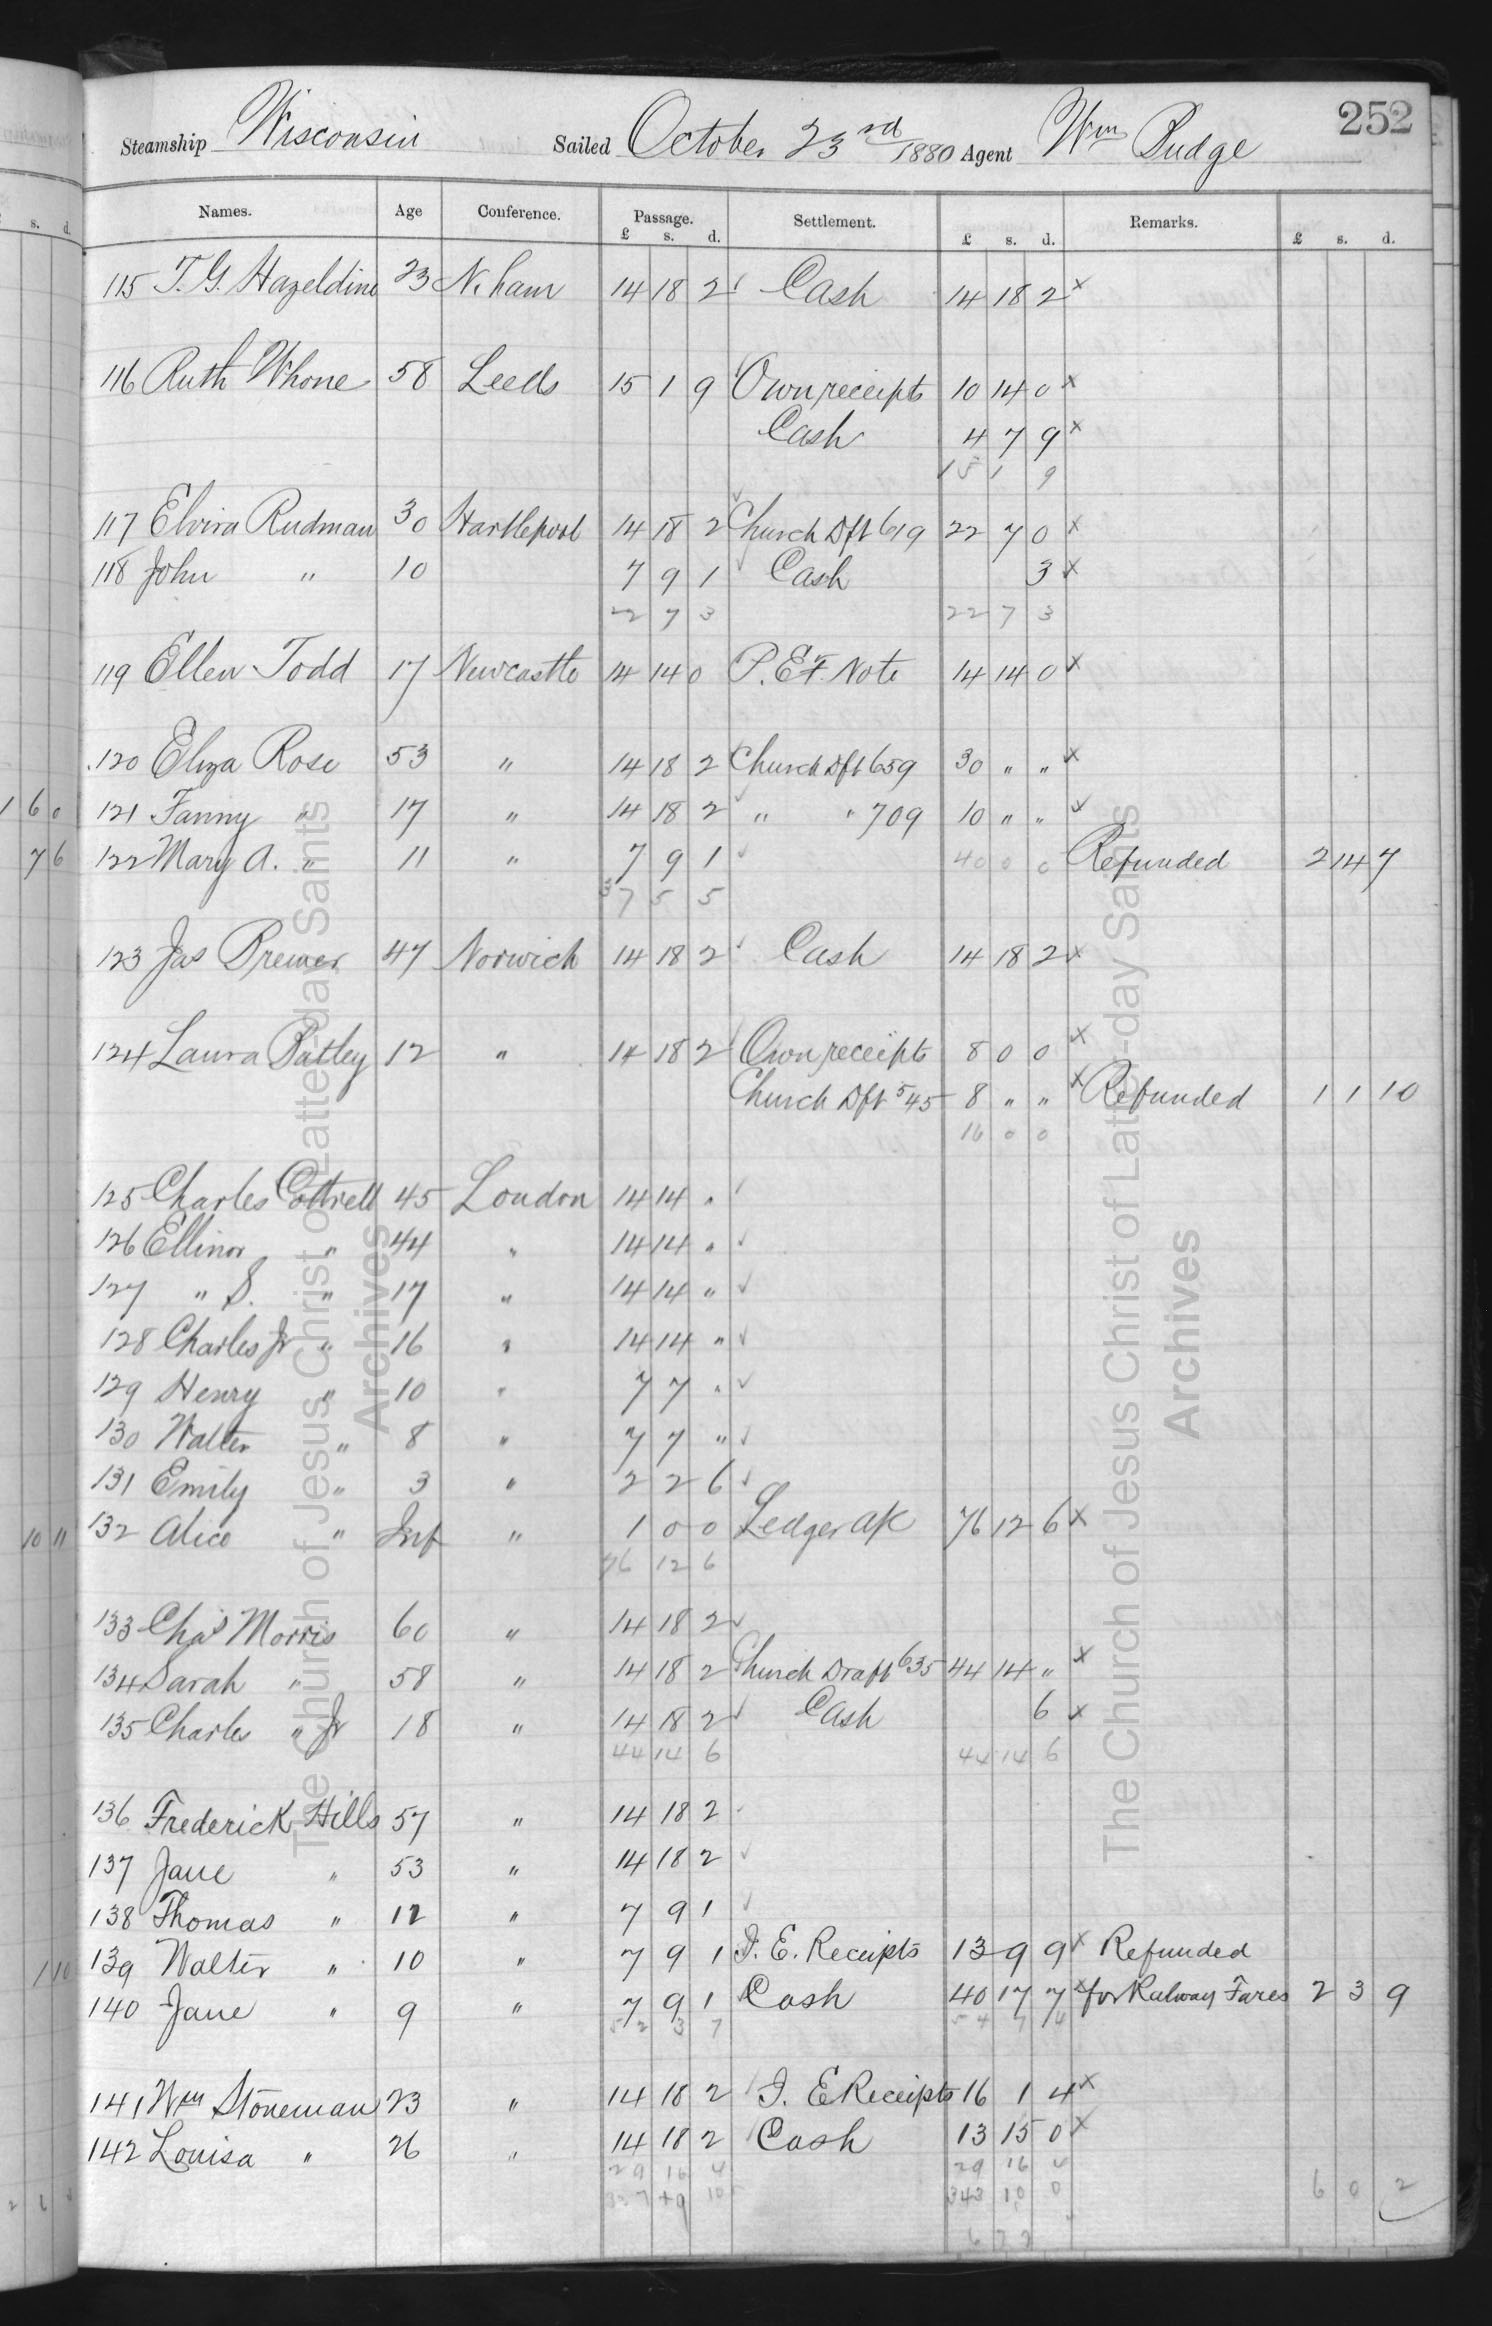 252
Steamship Wisconsin Sailed October 23rd 1880 Agent Wm Budge
Names. Age Conference. Passage. Settlement. Remarks.
£ s. d. £ s. d. £ s. d.
115 T. G. Hazeldine 23 N.ham 14 18 2 Cash 14 18 2 x
116 Ruth Whone 58 Leeds 15 1 9 Own receipts 10 14 0 x
Cash 4 7 9 x
15 1 9
117 Elvira Rudman 30 Hartlepool 14 18 2 Church Dft 619 22 7 0 x
118 John " 10 7 9 1 Cash 3 x
22 7 3 22 7 3
119 Ellen Todd 17 Newcastle 14 14 0 P.E.F. Note 14 14 0 x
120 Eliza Rose 53 " 14 18 2 Church Dft 659 30 " " x
121 Fanny " 17 " 14 18 2 " " 709 10 " " x
122 Mary A. " 11 " 7 9 1 40 0 0 Refunded 2 14 7
37 5 5
123 Jas Brewer 47 Norwich 14 18 2 Cash 14 18 2 x
124 Laura Batley 12 " 14 18 2 Own receipts 8 0 0 x
Church Dft 545 8 " " x Refunded 1 1 10
16 0 0
125 Charles Cottrell 45 London 14 14 "
126 Ellinor " 44 " 14 14 "
127 " S. " 17 " 14 14 "
128 Charles Jr " 16 " 14 14 "
129 Henry " 10 " 7 7 "
130 Walter " 8 " 7 7 "
131 Emily " 3 " 2 2 6
132 Alice " Inf " 1 0 0 Ledger a/c 76 12 6 x
76 12 6
133 Chas Morris 60 " 14 18 2
134 Sarah " 58 " 14 18 2 Church Draft 635 44 14 " x
135 Charles " Jr 18 " 14 18 2 Cash 6 x
44 14 6 44 14 6
136 Frederick Hills 57 " 14 18 2
137 Jane " 53 " 14 18 2
138 Thomas " 12 " 7 9 1
139 Walter " 10 " 7 9 1 I. E. Receipts 13 9 9 x Refunded
140 Jane " 9 " 7 9 1 Cash 40 17 7 x for Railway Fares 2 3 9
52 3 7 54 7 4
141 Wm Stoneman 23 " 14 18 2 I. E Receipts 16 1 4 x
142 Louisa " 26 " 14 18 2 Cash 13 15 0 x
29 16 4 29 16 4
343 10 0 6 0 2
The Church of Jesus Christ of Latter-day Saints
Archives
The Church of Jesus Christ of Latter-day Saints
Archives